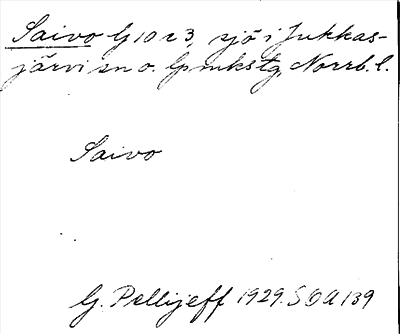 Saivo G 10 r 3, sjö i Jukkas-
järvi sn o. lpmkstg, Norrb. l.
Saivo
G. Pellijeff 1929. SOA 139